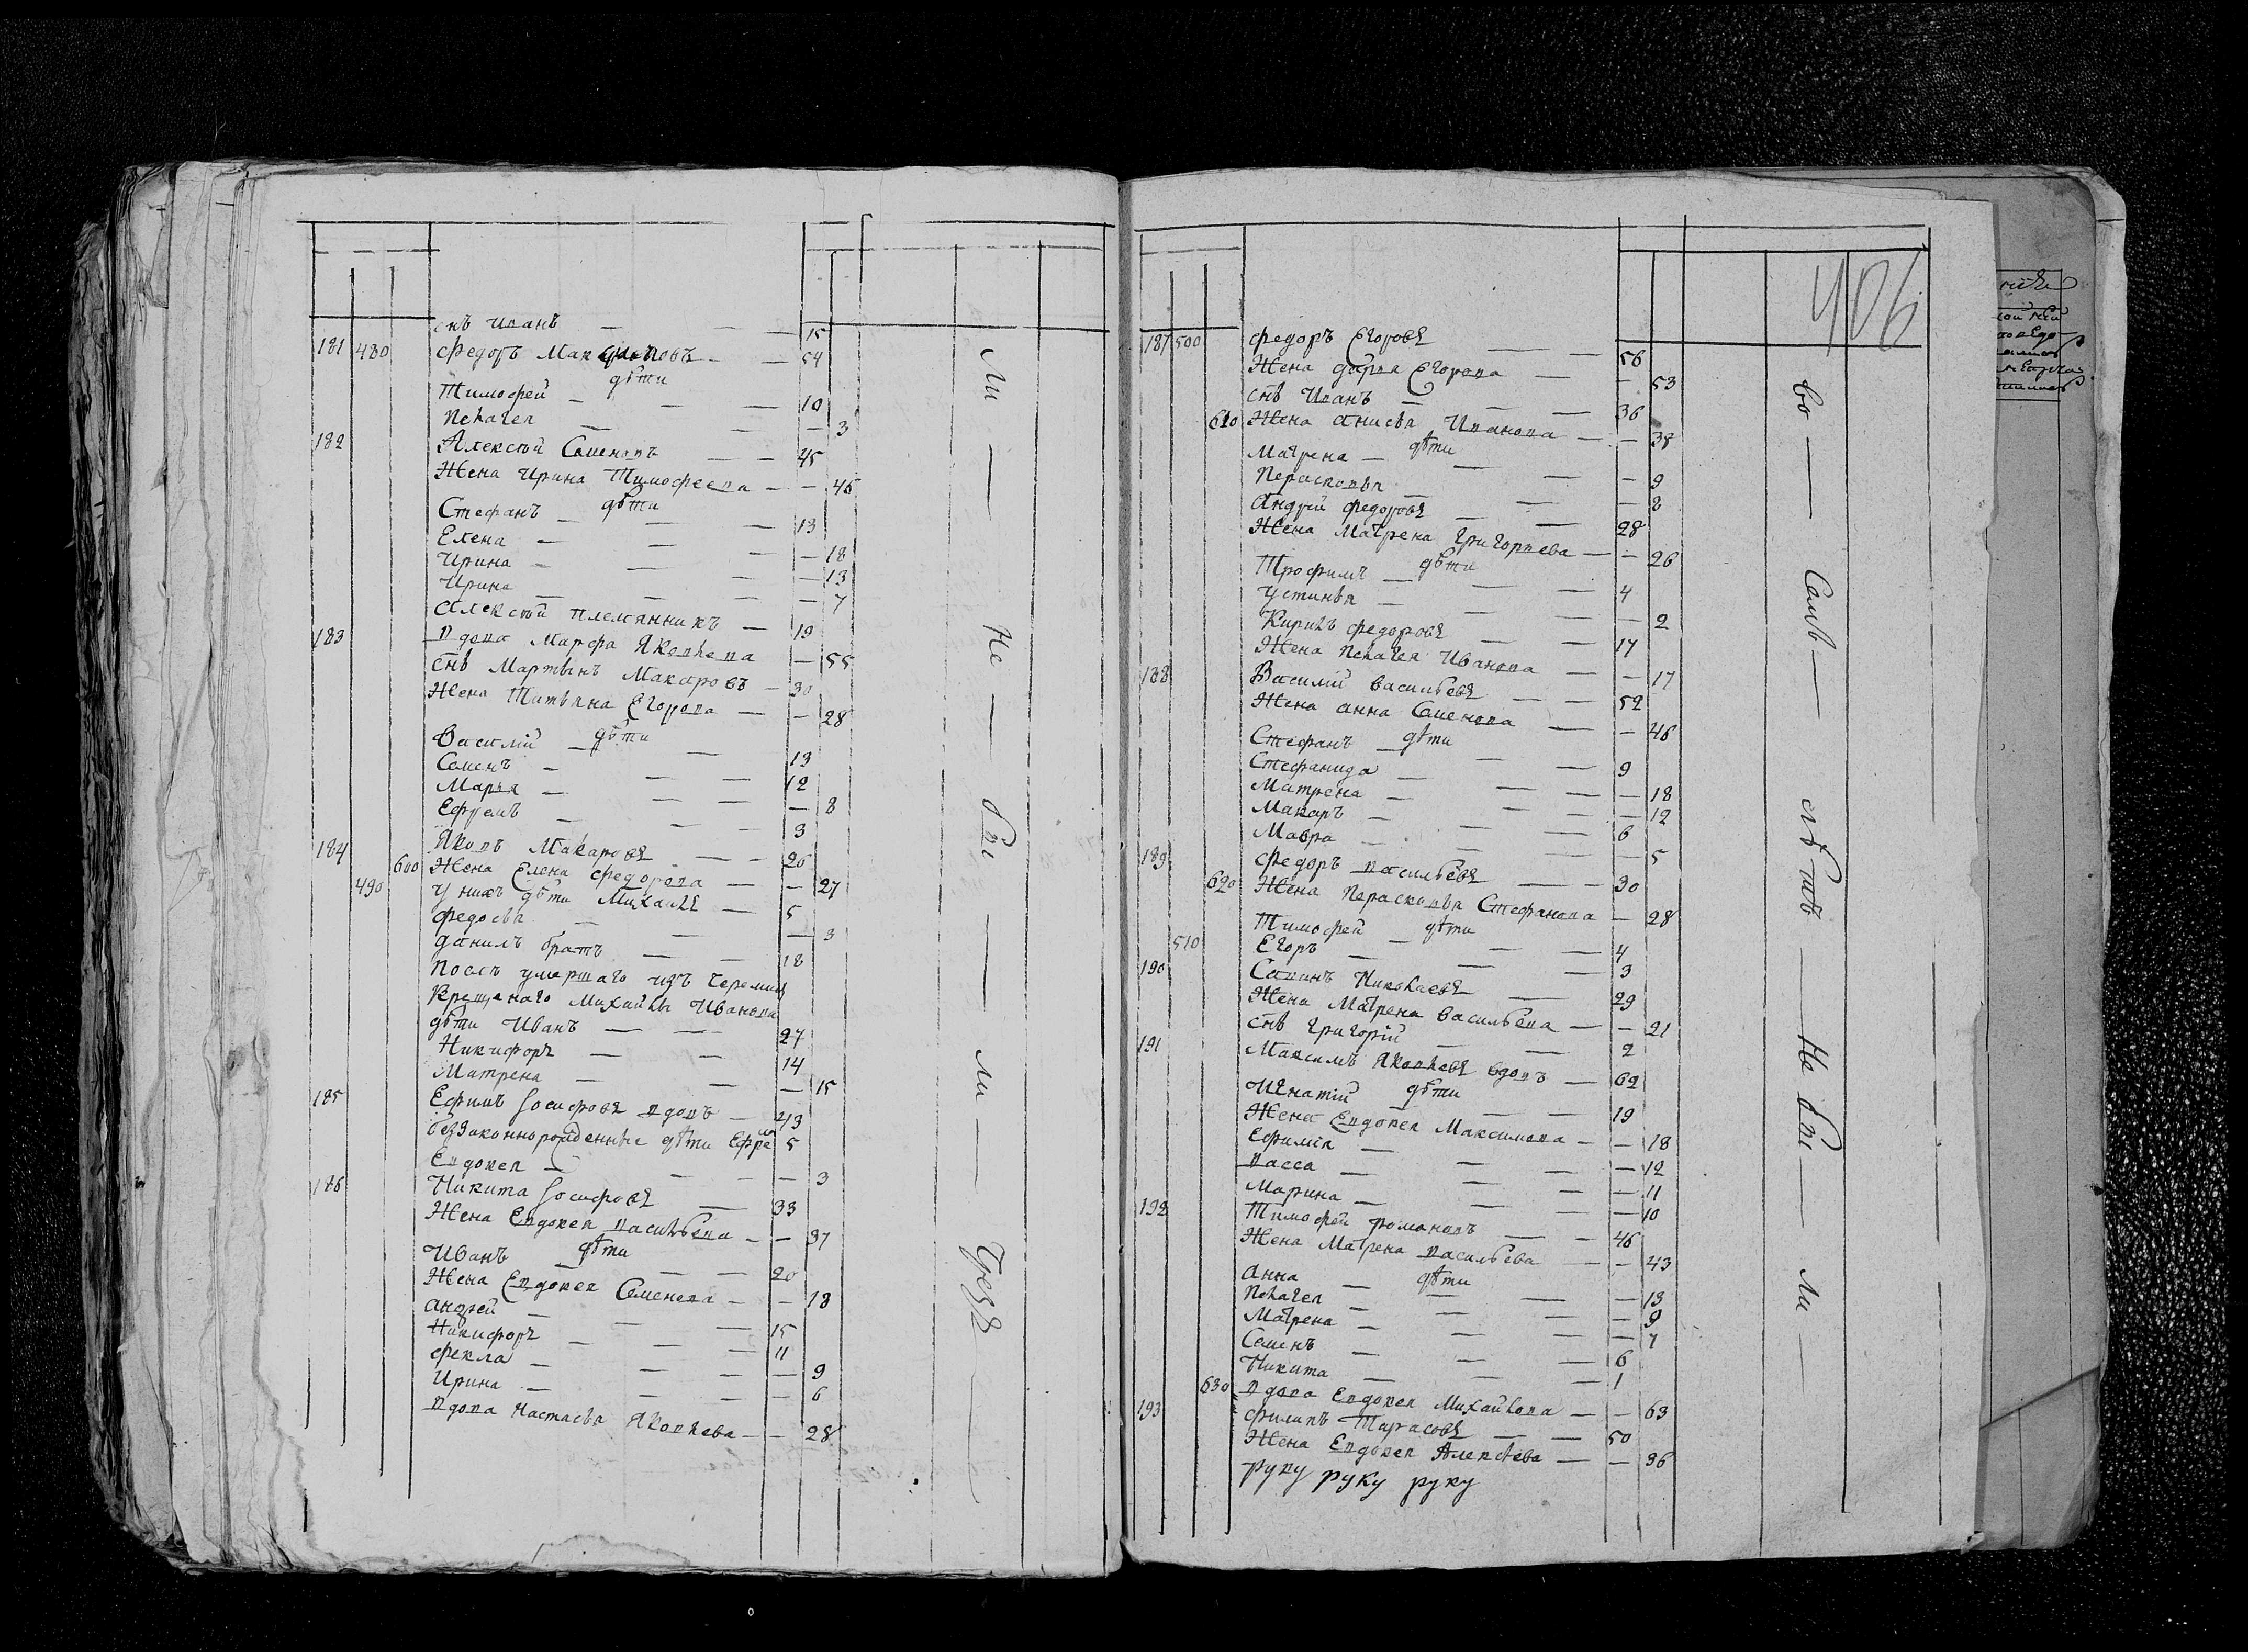 снъ Иванъ — 15
181 480 Федоръ Мак — 54
дѣти
Тимофей — 10
Пелагея — 3
182 Алексѣй Семеновъ — 45
Жена Ирина Тимофеева — 46
дѣти
Стефанъ — 13
Елена — 18
Ирина — 13
Ирина — 7
Алексѣй племянникъ — 19
183 Вдова Марфа Яковлева — 55
Снъ Мартынъ Макаровъ — 30
Жена Татьяна Егорова — 28
дѣти
Василій — 13
Семенъ — 12
Марья — 8
Ефремъ — 3
184 Яковъ Макаровъ — 26
600 Жена Елена Федорова — 27
490 У нихъ дѣти Михаилъ — 5
Федосья — 3
Данилъ братъ — 18
Послѣ умершаго изъ черемисъ
крещенаго Михайлы Иванова
дѣти Иванъ — 27
Никифоръ — 14
Матрена — 15
185 Ефимъ Іосифовъ вдовъ — 43
беззаконнорожденные дѣти Ефре 5
Евдокея — 3
186 Никита Іосифовъ — 33
Жена Евдокея Васильева — 37
дѣти
Иванъ — 20
Жена Евдокея Семенова — 18
Андрей — 15
Никифоръ — 11
Фекла — 9
Ирина — 6
Вдова Настасья Яковлева — 28
Ли — Не — бы — ли — чрезъ —
406
187 500 Федоръ Егоровъ — 56
Жена Дарья Егорова — 53
снъ Иванъ — 36
610 Жена Анисья Иванова — 38
дѣти
Матрена — 9
Перасковья — 8
Андрей Федоровъ — 28
Жена Матрена Григорьева — 26
дѣти
Трофимъ — 4
Устинья — 2
Кирилъ Федоровъ — 17
Жена Пелагея Иванова — 17
188 Василій Васильевъ — 52
Жена Анна Семенова — 46
дѣти
Стефанъ — 9
Стефанида — 18
Матрена — 12
Макаръ — 6
Мавра — 5
189 Федоръ Васильевъ — 30
620 Жена Перасковья Стефанова — 28
дѣти
Тимофей — 4
510 Егоръ — 3
190 Савинъ Николаевъ — 29
Жена Матрена Васильева — 21
снъ Григорій — 2
191 Максимъ Яковлевъ вдовъ — 62
дѣти
Игнатій — 19
Жена Евдокея Максимова — 18
Ефимія — 12
Васса — 11
Марина — 10
192 Тимофей Романовъ — 46
Жена Матрена Васильева — 43
дѣти
Анна — 13
Пелагея — 9
Матрена — 7
Семенъ — 6
Никита — 1
630 Вдова Евдокея Михайлова — 63
193 Филипъ Тарасовъ — 50
Жена Евдокея Алексѣева — 36
руку руку руку
во — Семъ — лѣтѣ — Не бы — ли —